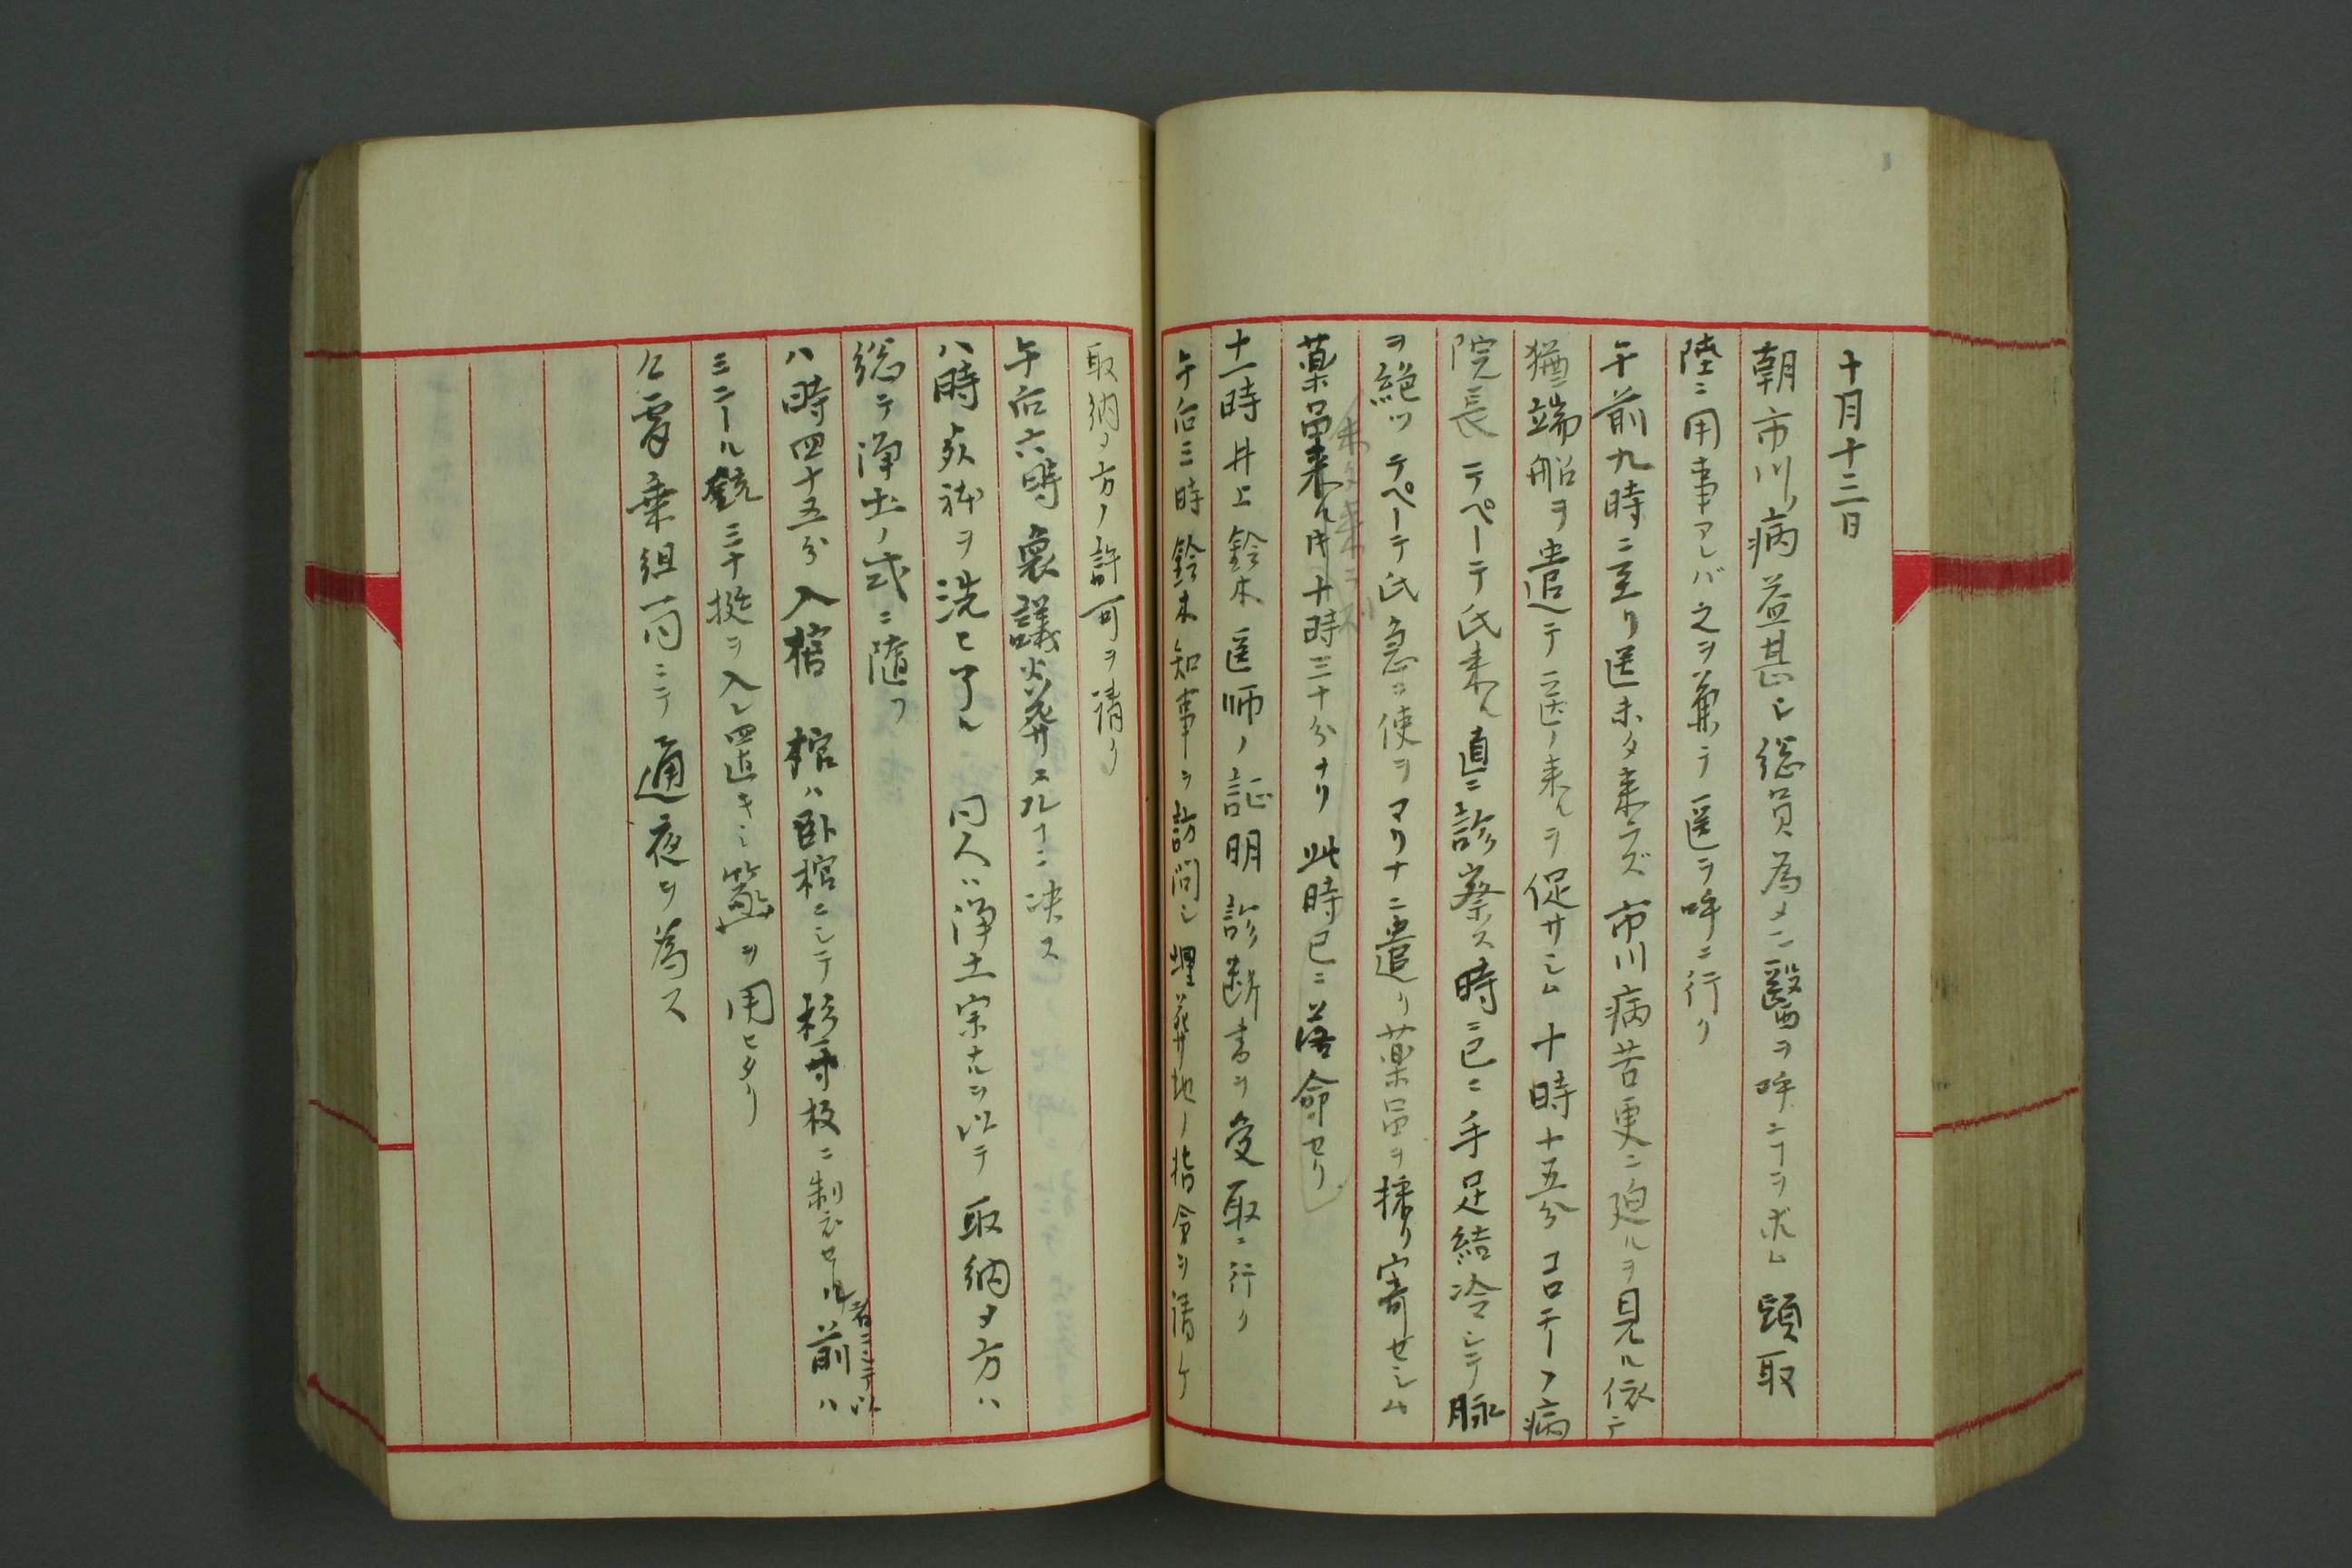 十月十三日
朝市川ノ病益甚シ総員為メニ醫ヲ呼ニヿヲ求ム 頭取
陸ニ用事アレバ之ヲ兼テ医ヲ呼ニ行ク
午前九時ニ至リ医未タ来ラズ 市川病苦更ニ迫ルヲ見ル依テ
猶端船ヲ遣テ医ノ来ルヲ促サシム 十時十五分 コロテーフ病
院長 テペーテ氏来ル 直ニ診察ス 時ニ已ニ手足結冷シテ脉
ヲ絶ツ テペーテ氏急ニ使ヲマリナニ遣リ薬品ヲ採リ寄せシム
薬品来ル時十時三十分ナリ 此時已ニ落命セリ
十一時井上鈴木医師ノ証明診断書ヲ受取ニ行ク
午后三時鈴木知事ヲ訪問シ埋葬地ノ指令ヲ請ケ
取納メ方ノ許可ヲ請フ
午后六時衆議火葬スルヿニ決ス
八時死体ヲ洗ヒ了ル 同人ハ浄土宗ナルヲ以テ取納メ方ハ
総テ浄土ノ式ニ随フ
八時四十五分入棺 棺ハ卧棺ニシテ杉板ニ製セル者ニシテ以前ハ
ミニール銃三十挺ヲ入レ置キシ函ヲ用ヒタリ
仝宵乗組一同ニテ通夜ヲ為ス